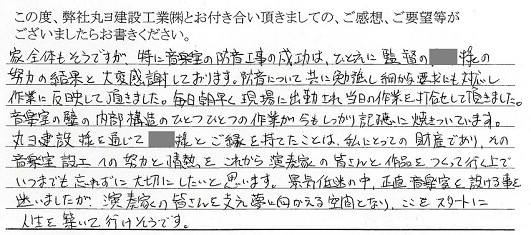 この度、弊社丸ヨ建設工業㈱とお付き合い頂きましての、ご感想、ご要望等が
ございましたらお書きください。
家全体もそうですが、特に音楽室の防音工事の成功は、ひとえに監督の 様の
努力の結果と大変感謝しております。防音について共に勉強し細かな要求にも対応し
作業に反映して頂きました。毎日朝早く現場に出勤され当日の作業を打合せして頂きました。
音楽室の壁の内部構造のひとつひとつの作業が今もしっかり記憶に焼きついています。
丸ヨ建設 様を通じて 様とご縁を持てたことは、私にとっての財産であり、その
音楽室設工への努力と情熱を これから演奏家の皆さんと作品をつくって行く上で
いつまでも忘れずに大切にしたいと思います。景気低迷の中、正直音楽室を設ける事を
迷いましたが、演奏家の皆さんを支え夢に向かえる空間となり、ここをスタートに
人生を築いて行けそうです。